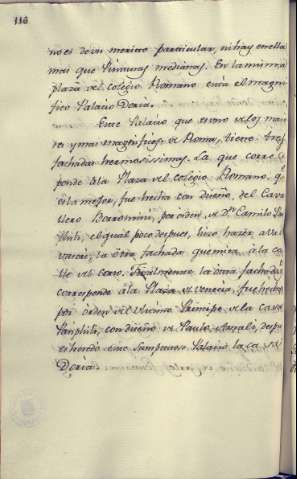 110
no es de un merito particular, ni hay en ella
mas que Pinturas medianas. En la misma
plaza del colegio Romano está el magni-
fico Palacio Doria.
Este Palacio que es uno de los mayo-
res y mas magnificos de Roma, tiene tres
fachadas hermosissimas. La que corres-
ponde à la Plaza del colegio Romano, q.
es la mejor, fue hecha con diseño, del Cava-
llero Borromini, por orden, de Dn. Camilo Pan-
philii, el qual poco despues, hizo hazer a
la otra fachada que mira, à la ca-
lle del Corso. Finalmente la otra fachada
corresponde à la Plaza de Venecia, fue hecha
por orden del ultimo Principe de la Casa
Panphilii, con diseño de Paulo Amali,
este sumptuoso Palacio la casa
Doria.